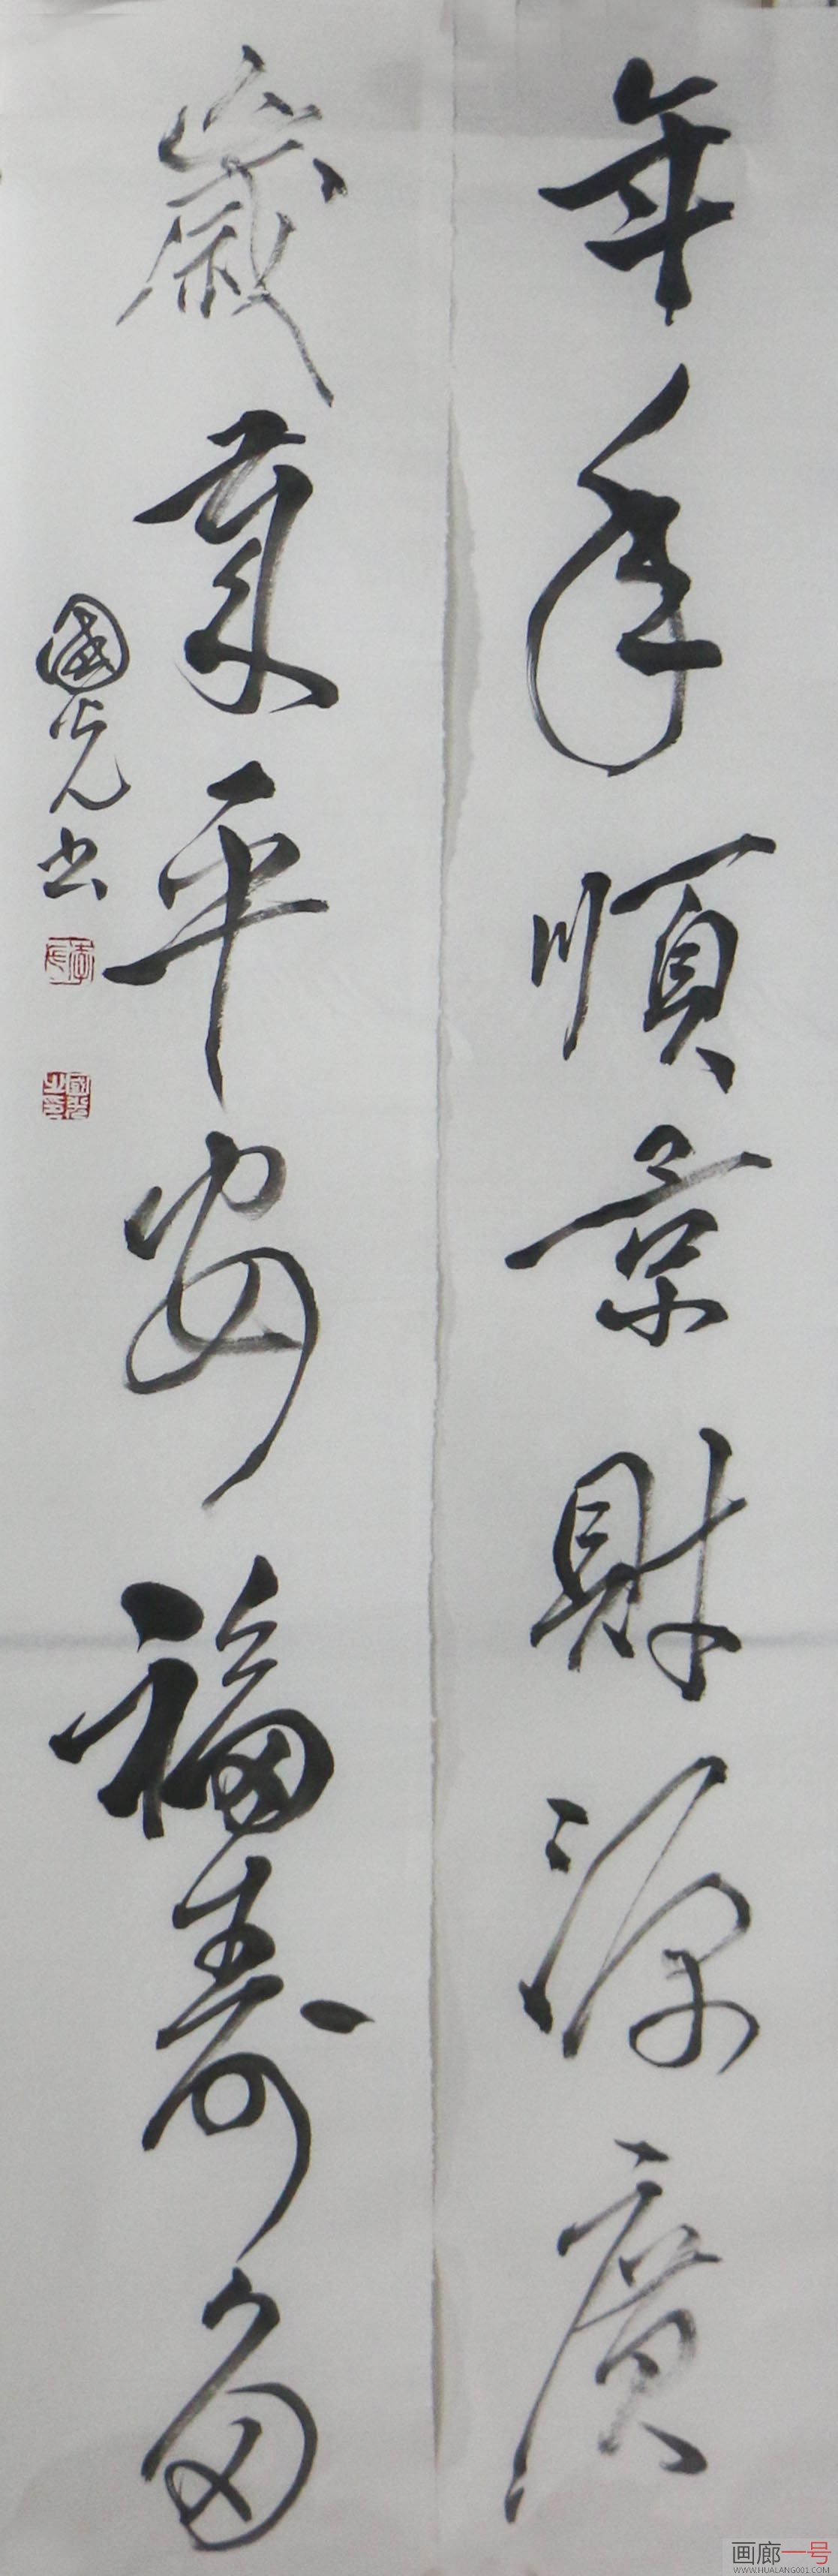 年年順景財源廣
歲歲平安福壽多
國光书
國光之印
画廊一号
WWW.HUALANG001.COM